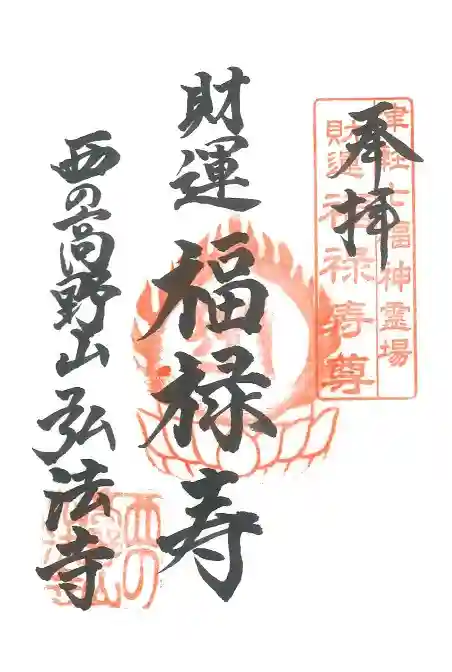 奉拝
津軽七福神霊場
財運福禄寿尊
財運
福禄寿
西の高野山弘法寺
西の